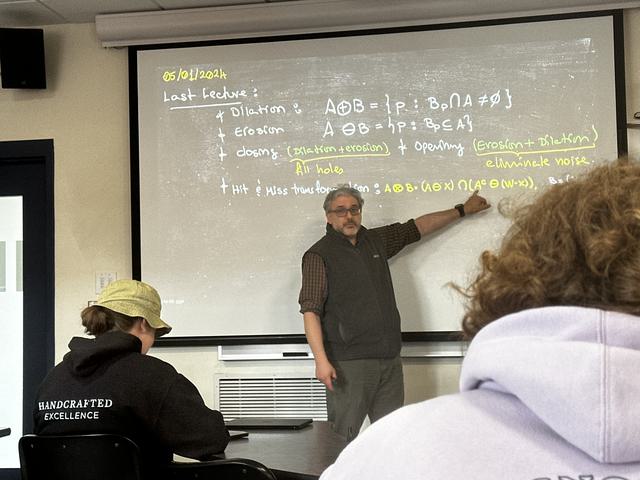 05/01/2024
Last Lecture :
+ Dilation : A⊕B = {p : Bp∩A ≠ ∅}
+ Erosion A⊖B = {p : Bp ⊆ A}
+ closing (Dilation+erosion) + Opening (Erosion + Dilation)
All holes eliminate noise.
+ Hit & Miss transformation : A⊗B = (A⊖X) ∩ (Aᶜ ⊖ (W-X)),
HANDCRAFTED
EXCELLENCE